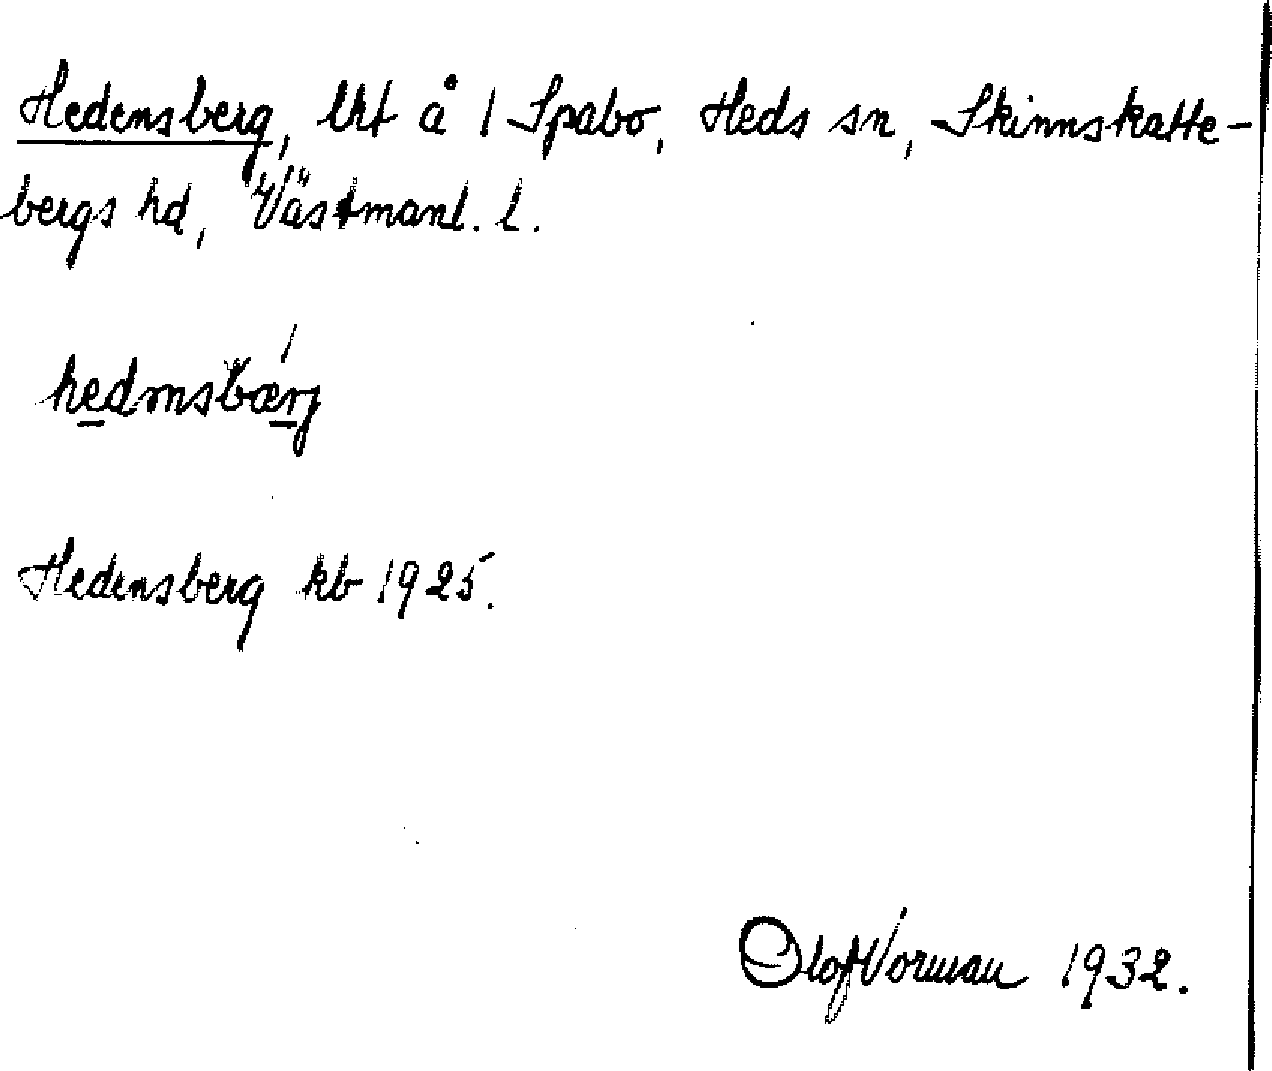 Hedensberg, lht å 1 Spabo, Heds sn, Skinnskatte-
bergs hd, Västmanl. l.
hedmsbærj
Hedensberg kb 1925.
Olof Vorman 1932.